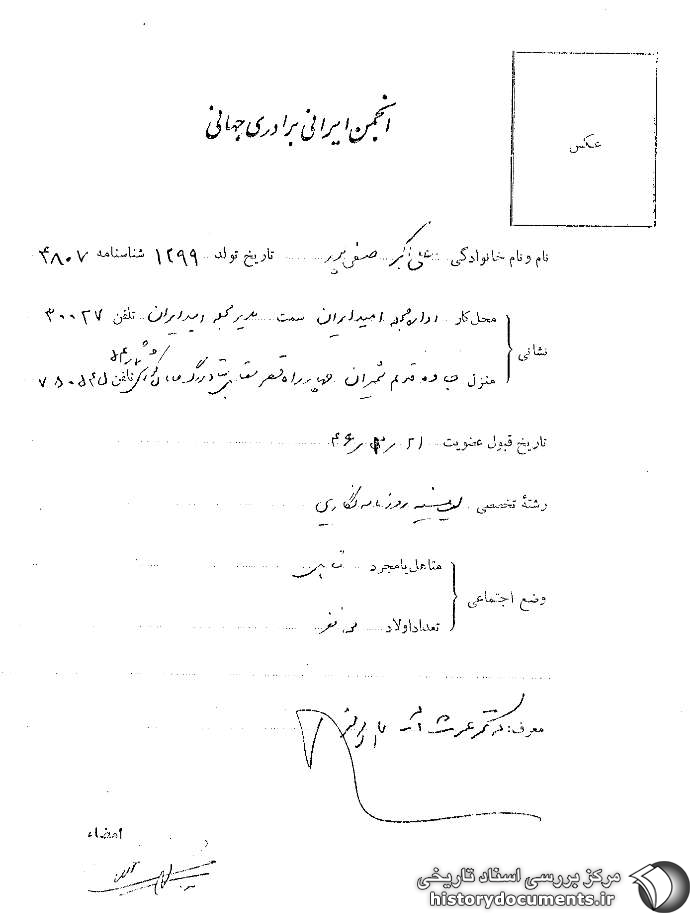 انجمن ایرانی برادری جهانی
عکس
نام و نام خانوادگی علی اکبر صفی پور تاریخ تولد ۱۲۹۹ شناسنامه ۴۸۰۷
نشانی
محل کار اداره مجله امید ایران سمت مدیر مجله امید ایران تلفن ۳۰۰۲۷
منزل جاده قدیم شمیران چهارراه قصر مقابل تلفن ۷۵۰۵۴۵
تاریخ قبول عضویت ۲۱ ر ۳ ر ۴۶
رشتهٔ تخصصی لیسانسیه روزنامه نگاری
وضع اجتماعی
متاهل یا مجرد متاهل
تعداد اولاد نفر
معرف: دکتر
امضاء
مرکز بررسی اسناد تاریخی
historydocuments.ir